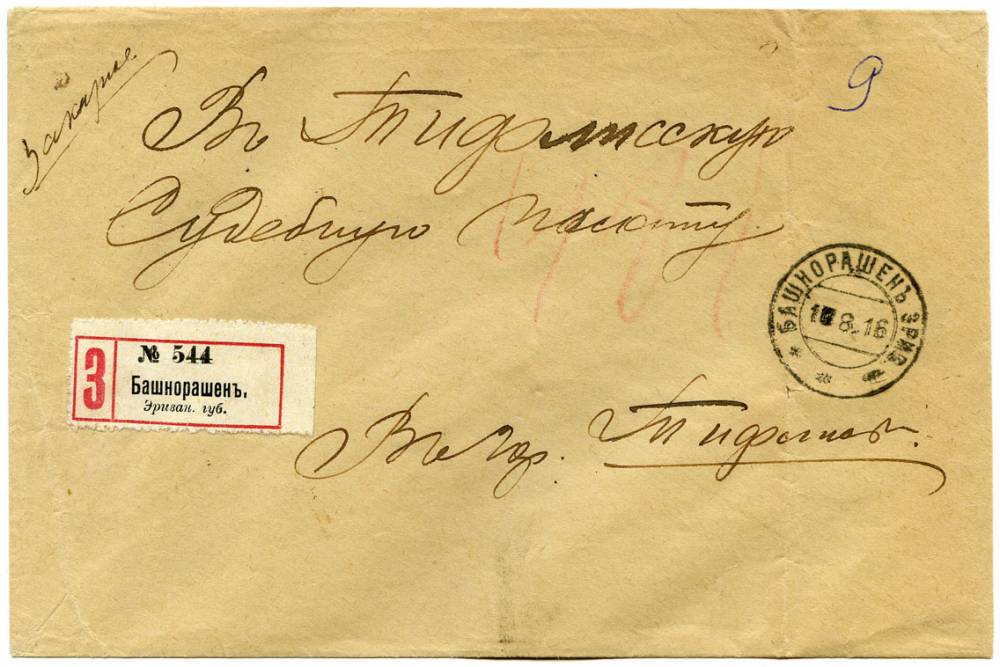 Заказное
9
Въ Тифлисскую
Судебную Палату.
БАШНОРАШЕНЪ ЭРИВ
8.16
З
№ 544
Башнорашенъ.
Эриван. губ.
Въ гор. Тифлисѣ.